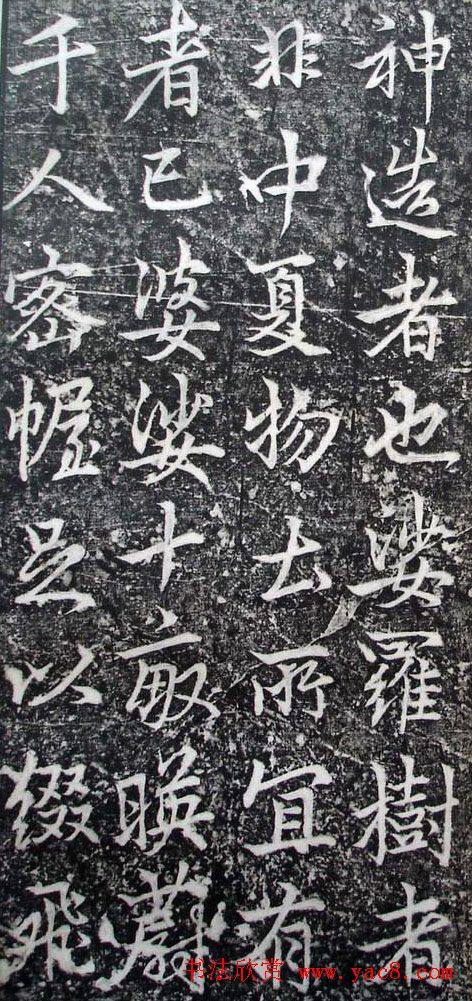 神造者也娑羅樹者
非中夏物土所宜有
者已婆娑十畝暎蔚
千人密幄足以綴飛
书法欣赏 www.yac8.com